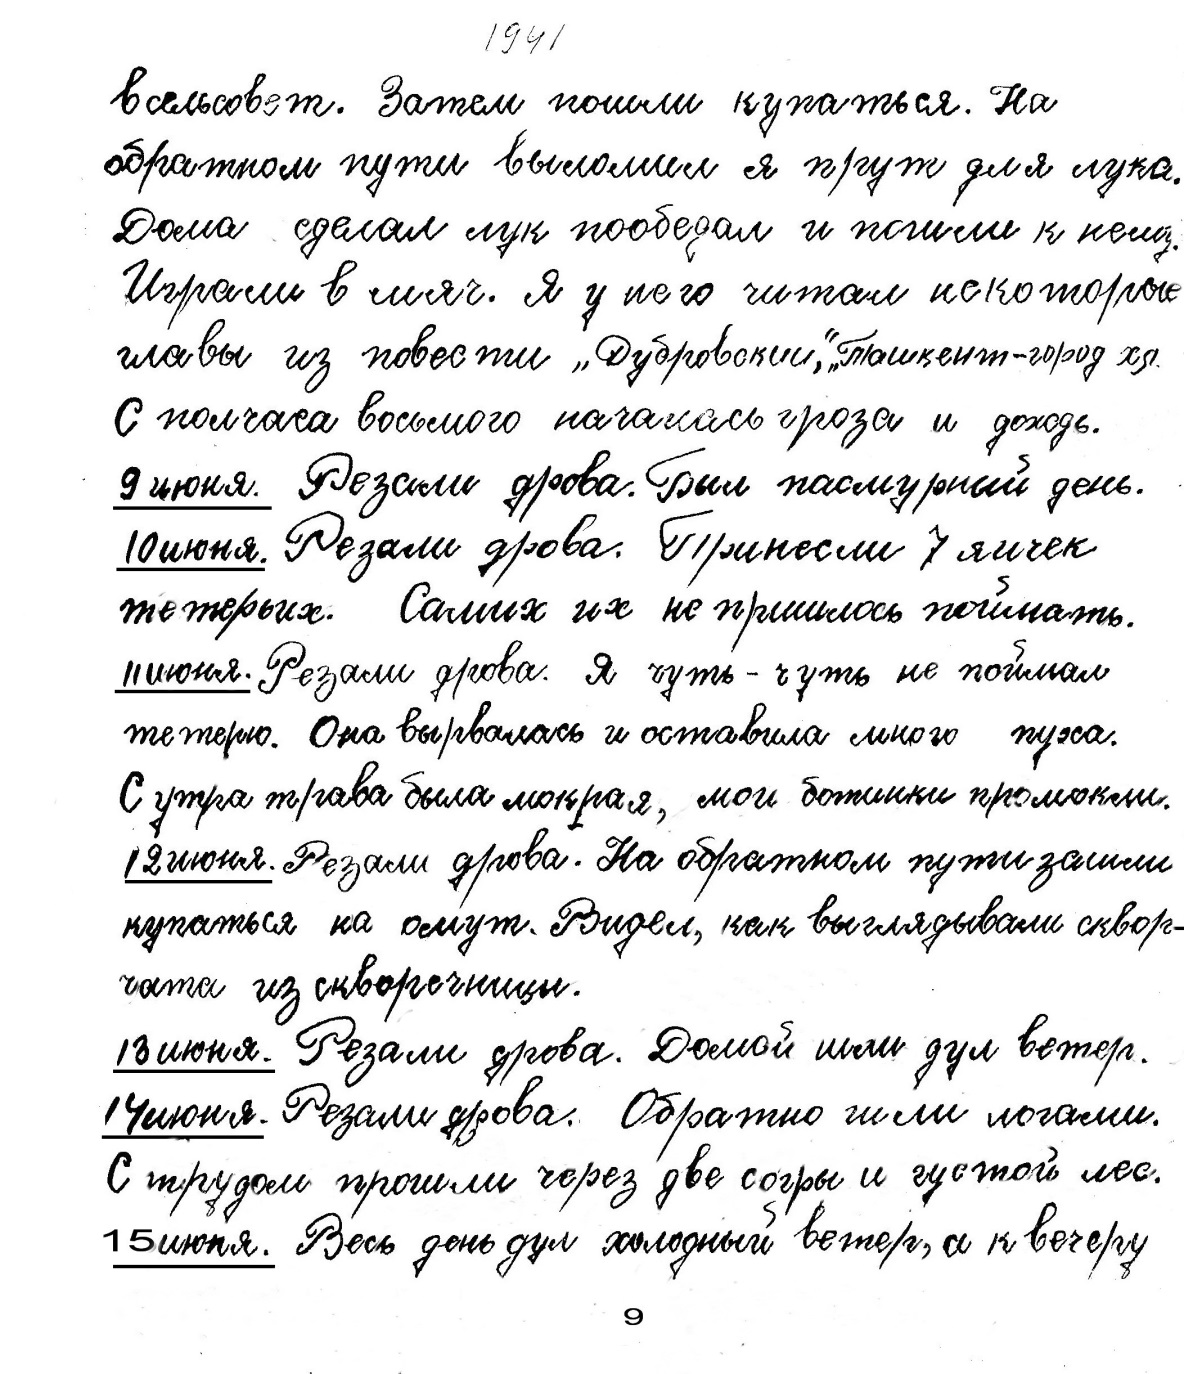 1941
в сельсовет. Затем пошли купаться. На
обратном пути выломил я прут для лука.
Дома сделал лук пообедал и пошли к нему.
Играли в мяч. Я у него читал некоторые
главы из повести „Дубровский“, „Ташкент-город хл.
С полчаса восьмого началась гроза и дождь.
9 июня. Резали дрова. Был пасмурный день.
10 июня. Резали дрова. Принесли 7 яичек
тетерьих. Самих их не пришлось поймать.
11 июня. Резали дрова. Я чуть-чуть не поймал
тетерю. Она вырвалась и оставила много пуха.
С утра трава была мокрая, мои ботинки промокли.
12 июня. Резали дрова. На обратном пути зашли
купаться на омут. Видел, как выглядывали сквор-
чата из скворечницы.
13 июня. Резали дрова. Домой шли дул ветер.
14 июня. Резали дрова. Обратно шли логами.
С трудом прошли через две согры и густой лес.
15 июня. Весь день дул холодный ветер, а к вечеру
9